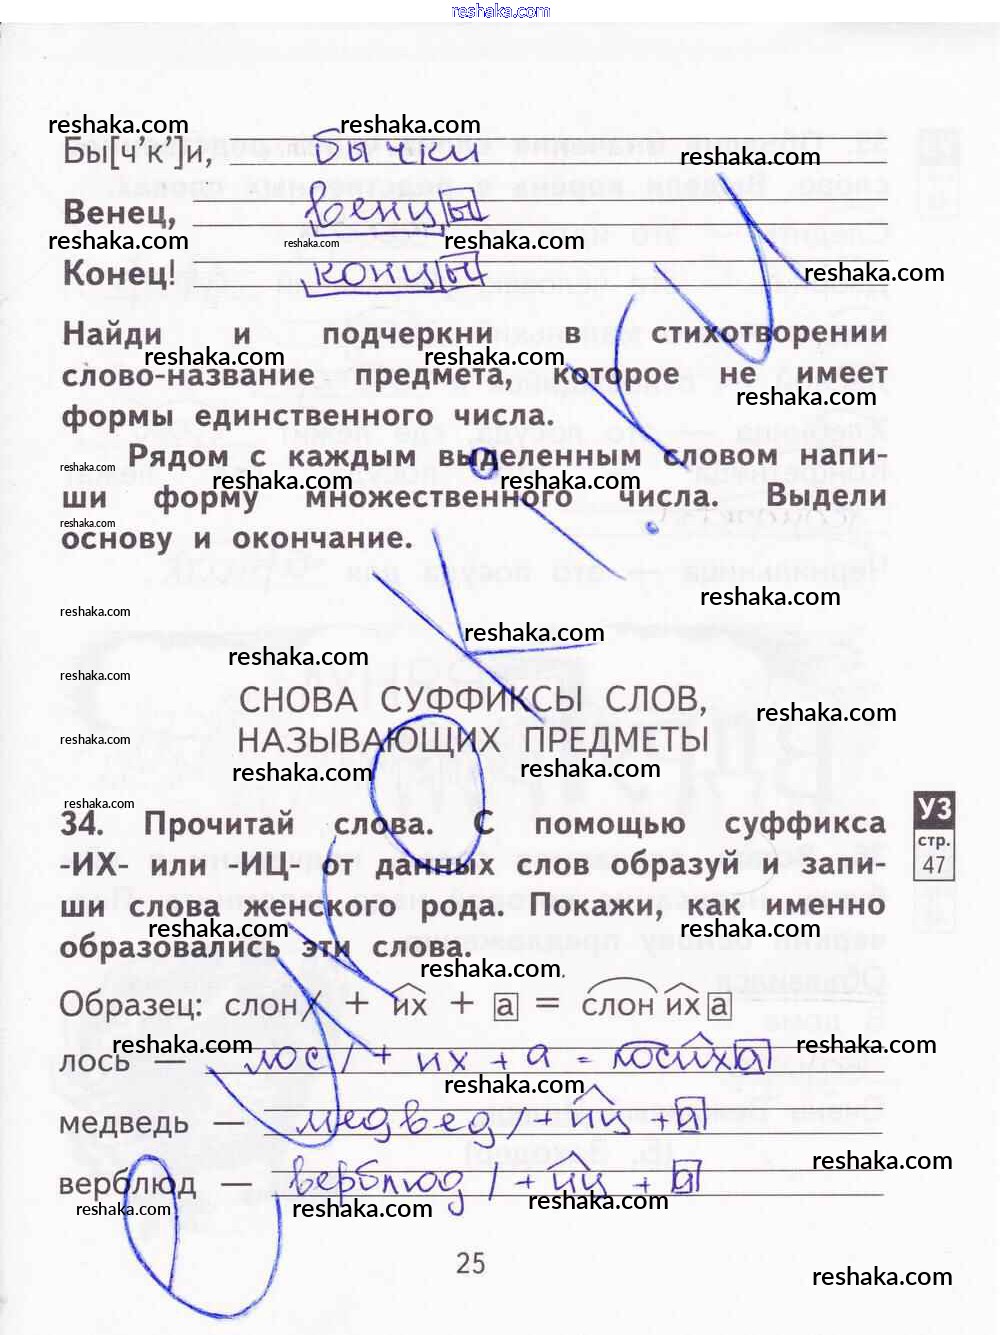 reshaka.com
reshaka.com reshaka.com
Бы[ч’к’]и, бычки
reshaka.com
Венец, венцы
reshaka.com reshaka.com reshaka.com
Конец! концы
reshaka.com
Найди и подчеркни в стихотворении
reshaka.com reshaka.com
слово-название предмета, которое не имеет
reshaka.com
формы единственного числа.
Рядом с каждым выделенным словом напи-
reshaka.com reshaka.com reshaka.com
ши форму множественного числа. Выдели
reshaka.com
основу и окончание.
reshaka.com
reshaka.com
reshaka.com
reshaka.com
reshaka.com
СНОВА СУФФИКСЫ СЛОВ,
reshaka.com
НАЗЫВАЮЩИХ ПРЕДМЕТЫ
reshaka.com
reshaka.com reshaka.com
reshaka.com
УЗ
стр.
47
34. Прочитай слова. С помощью суффикса
-ИХ- или -ИЦ- от данных слов образуй и запи-
ши слова женского рода. Покажи, как именно
reshaka.com reshaka.com
образовались эти слова.
reshaka.com
Образец: слон/ + их + а = слониха
reshaka.com reshaka.com
лось — лос/ + их + а = лосиха
reshaka.com
медведь — медвед/ + иц + а
reshaka.com
верблюд — верблюд/ + иц + а
reshaka.com reshaka.com reshaka.com
25
reshaka.com